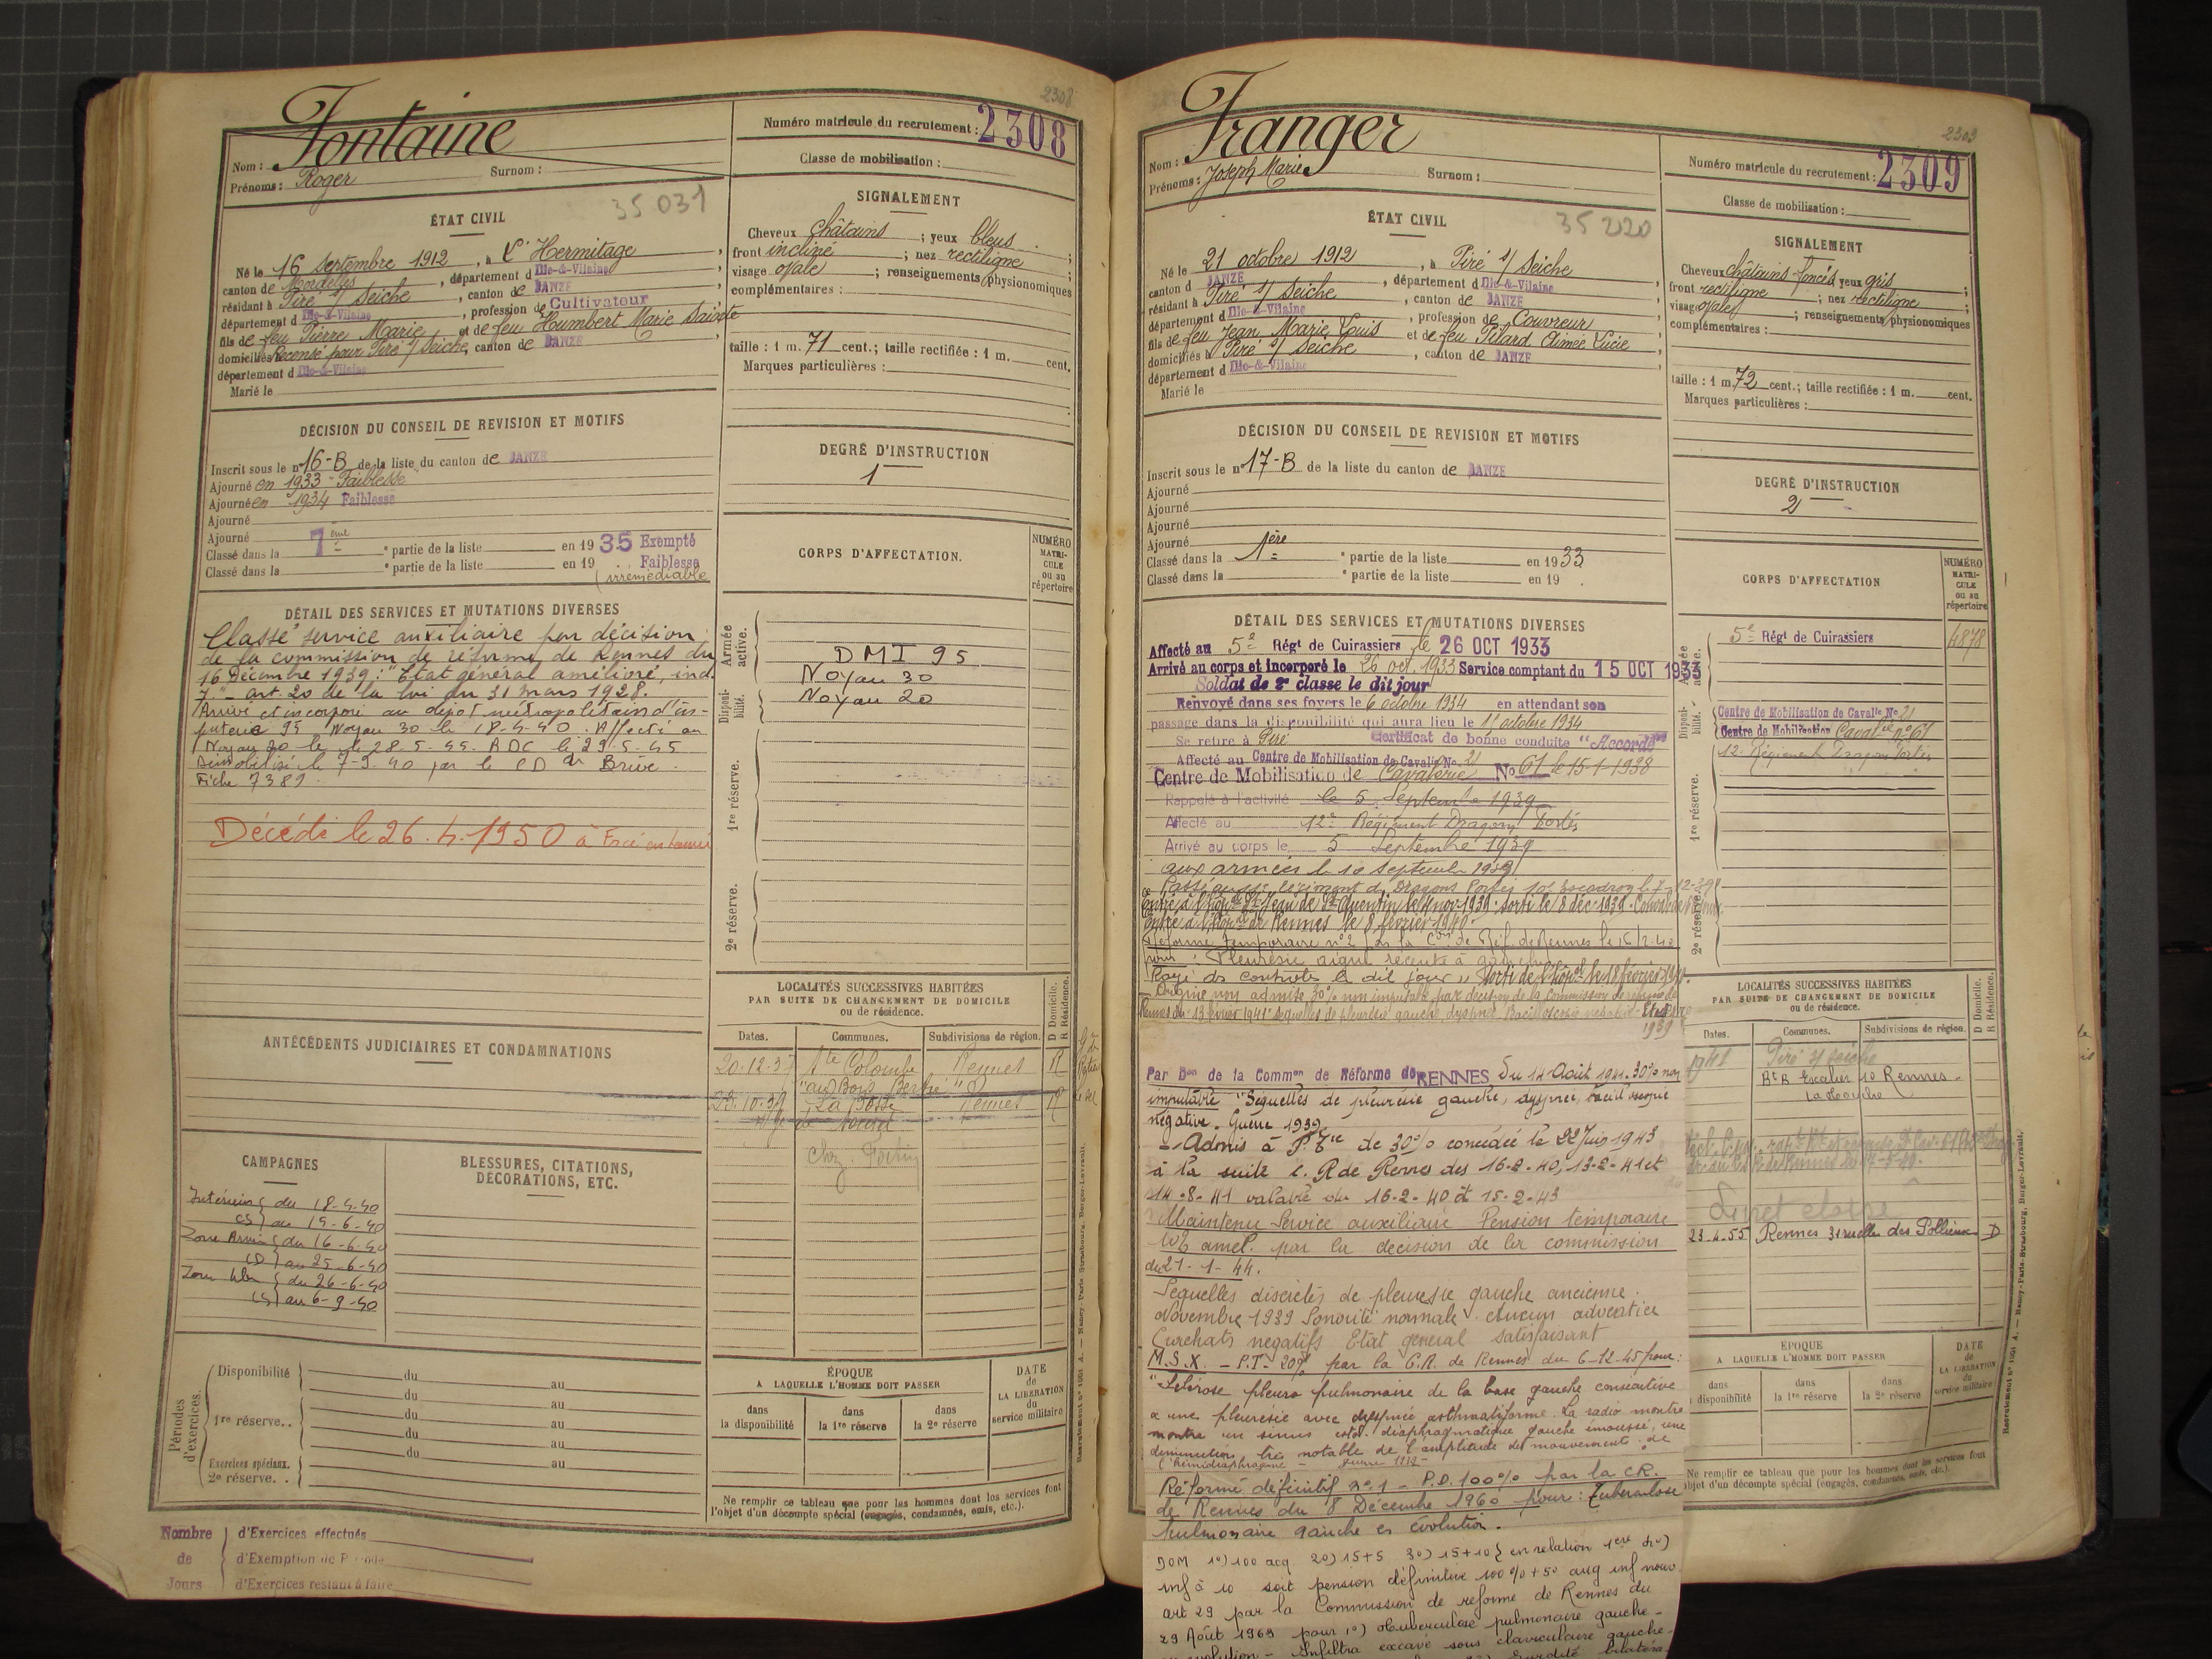 2308
Fontaine
Nom :
Prénoms : Roger
Surnom :
Numéro matricule du recrutement : 2308
Classe de mobilisation :
35 031
ÉTAT CIVIL
Né le 16 septembre 1912, à L'Hermitage,
canton de Mordelles, département d Ille-&-Vilaine,
résidant à Piré s/ Seiche, canton de JANZE,
département d Ille-&-Vilaine, profession de Cultivateur
fils de feu Pierre Marie et de feu Humbert Marie Sainte
domiciliés Recensé pour Piré s/ Seiche, canton de JANZE,
département d Ille-&-Vilaine
Marié le
SIGNALEMENT
Cheveux châtains ; yeux bleus.
front incliné ; nez rectiligne ;
visage ovale ; renseignements physionomiques
complémentaires :
taille : 1 m. 71 cent.; taille rectifiée : 1 m. cent.
Marques particulières :
DÉCISION DU CONSEIL DE REVISION ET MOTIFS
Inscrit sous le n° 16-B de la liste du canton de JANZE
Ajourné en 1933 - Faiblesse
Ajourné en 1934 Faiblesse
Ajourné
Ajourné
Classé dans la 7ème partie de la liste en 1935 Exempté
Classé dans la partie de la liste en 19 Faiblesse
(irrémédiable
DEGRÉ D'INSTRUCTION
1
CORPS D'AFFECTATION.
NUMÉRO MATRICULE ou au répertoire
DÉTAIL DES SERVICES ET MUTATIONS DIVERSES
Classé service auxiliaire par décision
de la commission de réforme de Rennes du
16 Décembre 1939 : "Etat général amélioré, ind.
7." - art. 20 de la loi du 31 mars 1928.
Arrivé et incorporé au dépôt métropolitain d'in-
fanterie 95 Noyau 30 le 18-4-40. Affecté au
Noyau 20 le 28-5-45. RDC le 29-5-45
Démobilisé le 7-9-40 par le CD de Brive.
Fiche 7389
Décédé le 26.4.1950 à
Armée active.
DMI 95
Noyau 30
Disponibilité.
Noyau 20
1re réserve.
2e réserve.
LOCALITÉS SUCCESSIVES HABITÉES
PAR SUITE DE CHANGEMENT DE DOMICILE
ou de résidence.
D Domicile.
R Résidence.
Dates. Communes. Subdivisions de région.
20-12-37 Ste Colombe Rennes R
"au Bois Berthe"
La Bosse Rennes R
ANTÉCÉDENTS JUDICIAIRES ET CONDAMNATIONS
CAMPAGNES
Intérieur { du 18-4-40
CS } au 15-6-40
Zone Armées { du 16-6-40
(D) au 25-6-40
Zone libre { du 26-6-40
CS) au 6-9-40
BLESSURES, CITATIONS,
DÉCORATIONS, ETC.
Périodes d'exercices.
Disponibilité du au
du au
1re réserve.. du au
du au
Exercices spéciaux. du au
2e réserve. .
ÉPOQUE
A LAQUELLE L'HOMME DOIT PASSER
dans la disponibilité
dans la 1re réserve
dans la 2e réserve
DATE de LA LIBERATION du service militaire
Ne remplir ce tableau que pour les hommes dont les services font
l'objet d'un décompte spécial (engagés, condamnés, omis, etc.).
Nombre de Jours
d'Exercices effectués
d'Exemption de Période
d'Exercices restant à faire
Franger
Nom :
Prénoms : Joseph Marie
Surnom :
Numéro matricule du recrutement : 2309
Classe de mobilisation :
35 220
ÉTAT CIVIL
Né le 21 octobre 1912, à Piré s/ Seiche
canton d JANZE, département d Ille-&-Vilaine,
résidant à Piré s/ Seiche, canton de JANZE,
département d Ille-&-Vilaine, profession de Couvreur,
fils de feu Jean Marie Louis et de feu Pilard Aimée Lucie,
domiciliés à Piré s/ Seiche, canton de JANZE,
département d Ille-&-Vilaine
Marié le
SIGNALEMENT
Cheveux châtains foncés yeux gris
front rectiligne ; nez rectiligne
visage ovale ; renseignements physionomiques
complémentaires :
taille : 1 m. 72 cent.; taille rectifiée : 1 m. cent.
Marques particulières :
DÉCISION DU CONSEIL DE REVISION ET MOTIFS
Inscrit sous le n° 17-B de la liste du canton de JANZE
Ajourné
Ajourné
Ajourné
Ajourné
Classé dans la 1ère partie de la liste en 1933
Classé dans la partie de la liste en 19
DEGRÉ D'INSTRUCTION
2
CORPS D'AFFECTATION
NUMÉRO MATRICULE ou au répertoire
DÉTAIL DES SERVICES ET MUTATIONS DIVERSES
Affecté au 5e Régt de Cuirassiers le 26 OCT 1933
Arrivé au corps et incorporé le 26 oct. 1933 Service comptant du 15 OCT 1933
Soldat de 2e classe le dit jour
Renvoyé dans ses foyers le 6 octobre 1934 en attendant son
passage dans la disponibilité qui aura lieu le 15 octobre 1934
Se retire à Piré Certificat de bonne conduite "Accordé"
Affecté au Centre de Mobilisation de Cavalie No 21
Centre de Mobilisation de Cavalerie No 61 le 15-1-1938
Rappelé à l'activité le 5 Septembre 1939
Affecté au 12e Régiment Dragons Portés
Arrivé au corps le 5 Septembre 1939
aux armées le 10 Septembre 1939
Entré à l'hôp. St Jean de St Quentin le 4 nov 1939. Sorti le 8 déc 1939.
Entré à l'hôp. de Rennes le 8 février 1940.
Réformé temporaire n°2 par la Con de Réf. de Rennes le 16/2/40
pour : Pleurésie aigue récente à gauche
Rayé des controles le dit jour. Sorti de l'hôpal le 18 février 1940.
Origine non admise 30% non imputable par décision de la commission de réforme de
Rennes du 13 février 1941 "séquelles de pleurésie gauche, dyspnée, Bacilloscopie négative.
1939
Par Don de la Common de Réforme de RENNES du 14 Août 1941. 30% non
imputable "Séquelles de pleurésie gauche, dyspnée, bacilloscopie
négative. Guerre 1939.
- Admis à P. Tre de 30% concédée le 22 Juin 1943
à la suite C. R de Rennes des 16-2-40, 13-2-41 et
14-8-41 valable du 16-2-40 at 15-2-43
Maintenu Service auxiliaire Pension temporaire
10% amel. par la décision de la commission
du 27-1-44.
Sequelles discrètes de pleuresie gauche ancienne.
Novembre 1939 Sonorité normale. Aucun adventice
Crachats negatifs Etat general satisfaisant
M.S.X. - P.T- 20% par la C.R. de Rennes du 6-12-45 pour :
"Sclérose pleuro pulmonaire de la base gauche consécutive
a une pleurésie avec dyspnée asthmatiforme. La radio montre
montre un sinus costo diaphragmatique gauche émoussé, une
diminution très notable de l'amplitude des mouvements de
l'hémidiaphragme - guerre 1939 -
Réformé définitif n° 1 - P.D. 100% par la CR.
de Rennes du 8 Décembre 1960 pour : Tuberculose
pulmonaire gauche en évolution.
DOM 1°) 100 acq 2°) 15+5 3°) 15+10 } en relation 1ere
inf à 10 soit pension définitive 100% + 5° aug inf nouv
art 29 par la Commission de reforme de Rennes du
29 Août 1969 pour 1°) Tuberculose pulmonaire gauche -
évolution - Infiltra excavé sous claviculaire gauche -
Surdité bilatéra
Armée active.
5e Régt de Cuirassiers 4878
Disponibilité.
Centre de Mobilisation de Cavalie No 21
Centre de Mobilisation Cavalrie n° 61
12e Régiment Dragons Portés
1re réserve.
2e réserve.
LOCALITÉS SUCCESSIVES HABITÉES
PAR SUITE DE CHANGEMENT DE DOMICILE
ou de résidence.
D Domicile.
R Résidence.
Dates. Communes. Subdivisions de région.
1941 Piré s/ Seiche
Bt B Escalier 10 Rennes -
La Touche
23-4-55 Rennes D
ÉPOQUE
A LAQUELLE L'HOMME DOIT PASSER
dans disponibilité
dans la 1re réserve
dans la 2e réserve
DATE de LA LIBÉRATION du service militaire
Ne remplir ce tableau que pour les hommes dont les services font
objet d'un décompte spécial (engagés, condamnés, omis, etc.).